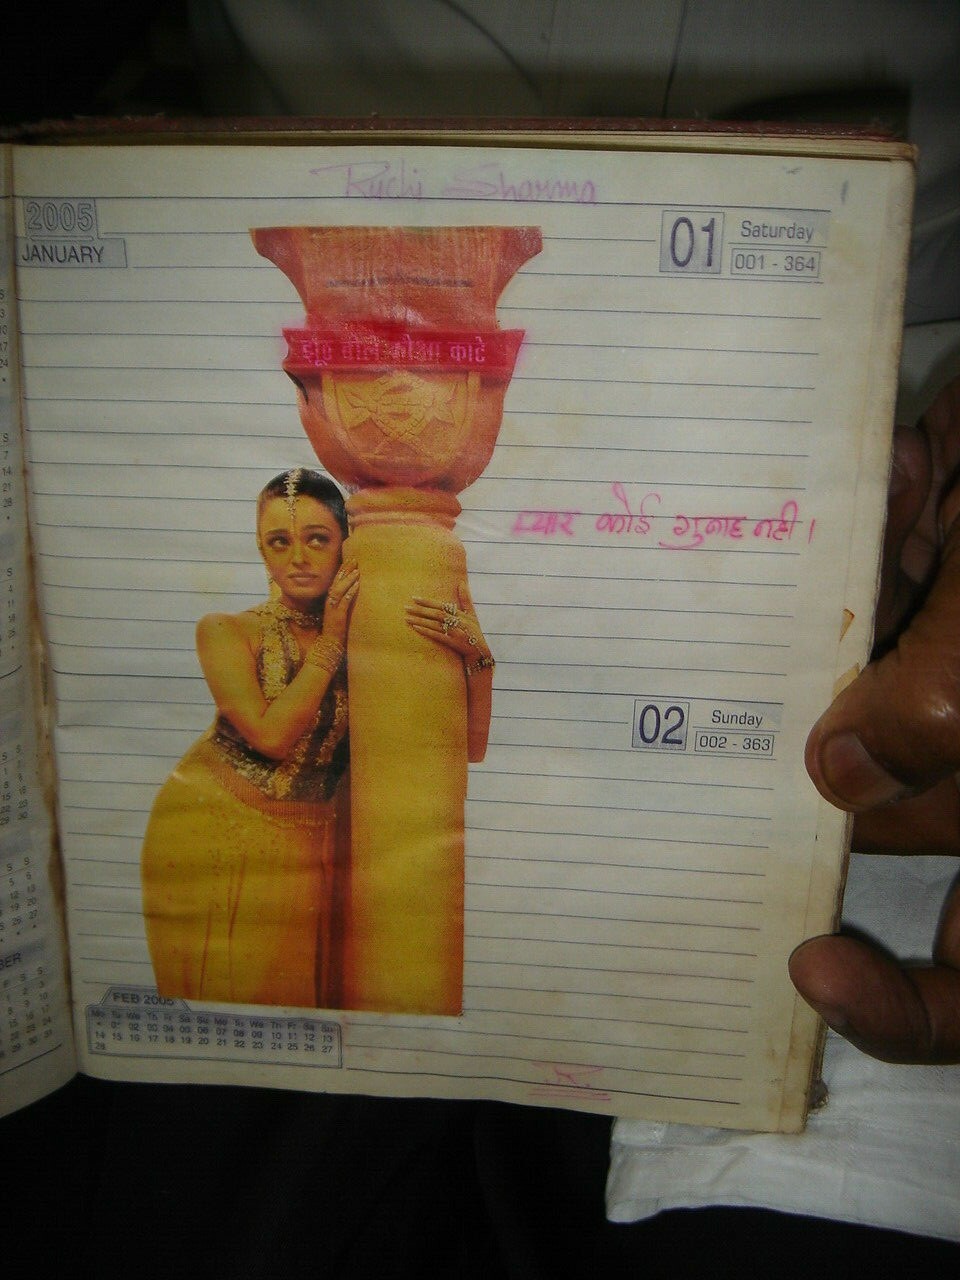 Ruchi Sharma
2005
JANUARY
01
Saturday
001 - 364
झूठ बोले कौआ काटे
प्यार कोई गुनाह नही।
02
Sunday
002 - 363
FEB 2005
Mo Tu We Th Fr Sa Su Mo Tu We Th Fr Sa Su
* 01 02 03 04 05 06 07 08 09 10 11 12 13
14 15 16 17 18 19 20 21 22 23 24 25 26 27
28